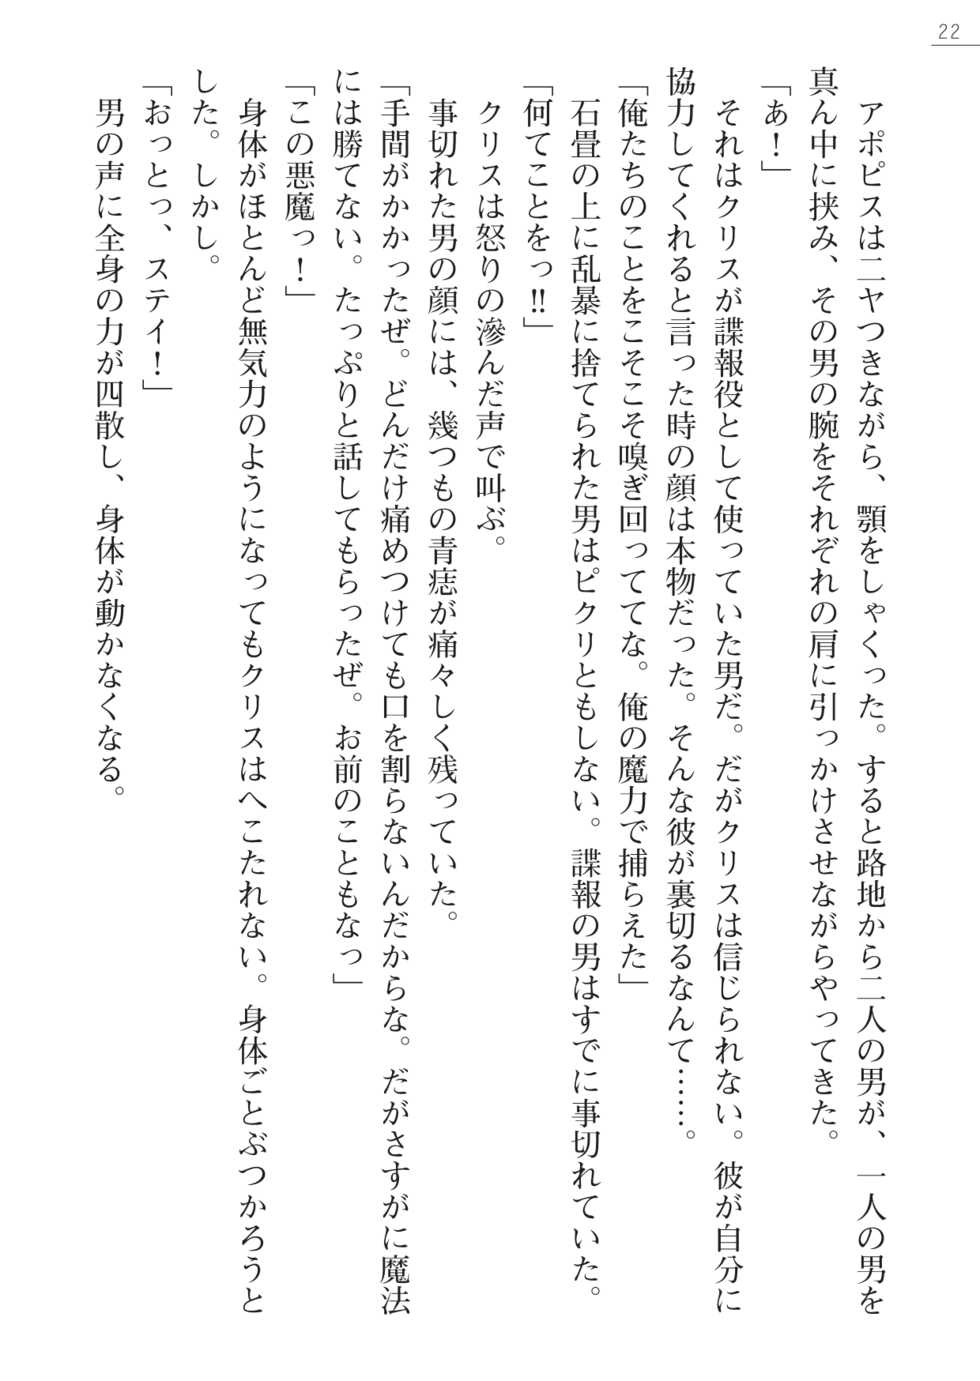 22
　アポピスはニヤつきながら、顎をしゃくった。すると路地から二人の男が、一人の男を
真ん中に挟み、その男の腕をそれぞれの肩に引っかけさせながらやってきた。
「あ！」
　それはクリスが諜報役として使っていた男だ。だがクリスは信じられない。彼が自分に
協力してくれると言った時の顔は本物だった。そんな彼が裏切るなんて……。
「俺たちのことをこそこそ嗅ぎ回っててな。俺の魔力で捕らえた」
　石畳の上に乱暴に捨てられた男はピクリともしない。諜報の男はすでに事切れていた。
「何てことをっ‼」
　クリスは怒りの滲んだ声で叫ぶ。
　事切れた男の顔には、幾つもの青痣が痛々しく残っていた。
「手間がかかったぜ。どんだけ痛めつけても口を割らないんだからな。だがさすがに魔法
には勝てない。たっぷりと話してもらったぜ。お前のこともなっ」
「この悪魔っ！」
　身体がほとんど無気力のようになってもクリスはへこたれない。身体ごとぶつかろうと
した。しかし。
「おっとっ、ステイ！」
　男の声に全身の力が四散し、身体が動かなくなる。